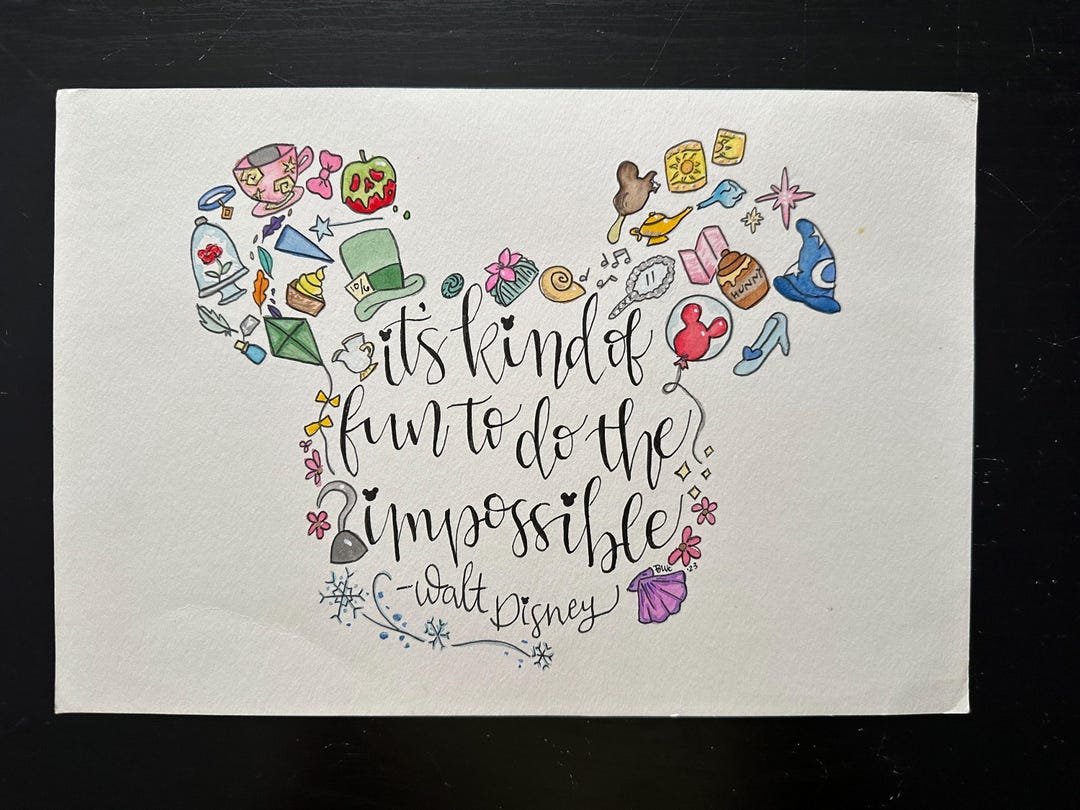 10/6
HUNNY
it's kind of
fun to do the
impossible
-Walt Disney
'23